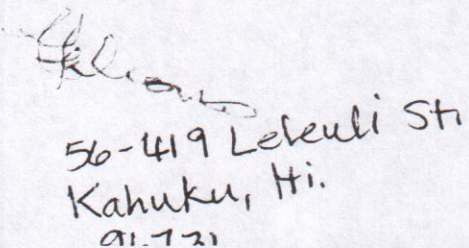 56-419 Leleuli St.
Kahuku, Hi.
96731